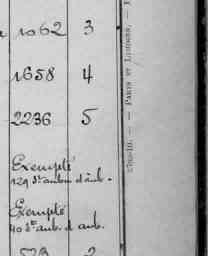 1062 3
1658 4
2236 5
Exempté
129 St aubin d'aub.
Exempté
40 St aub. d'aub.
2
PARIS ET LIMOGES